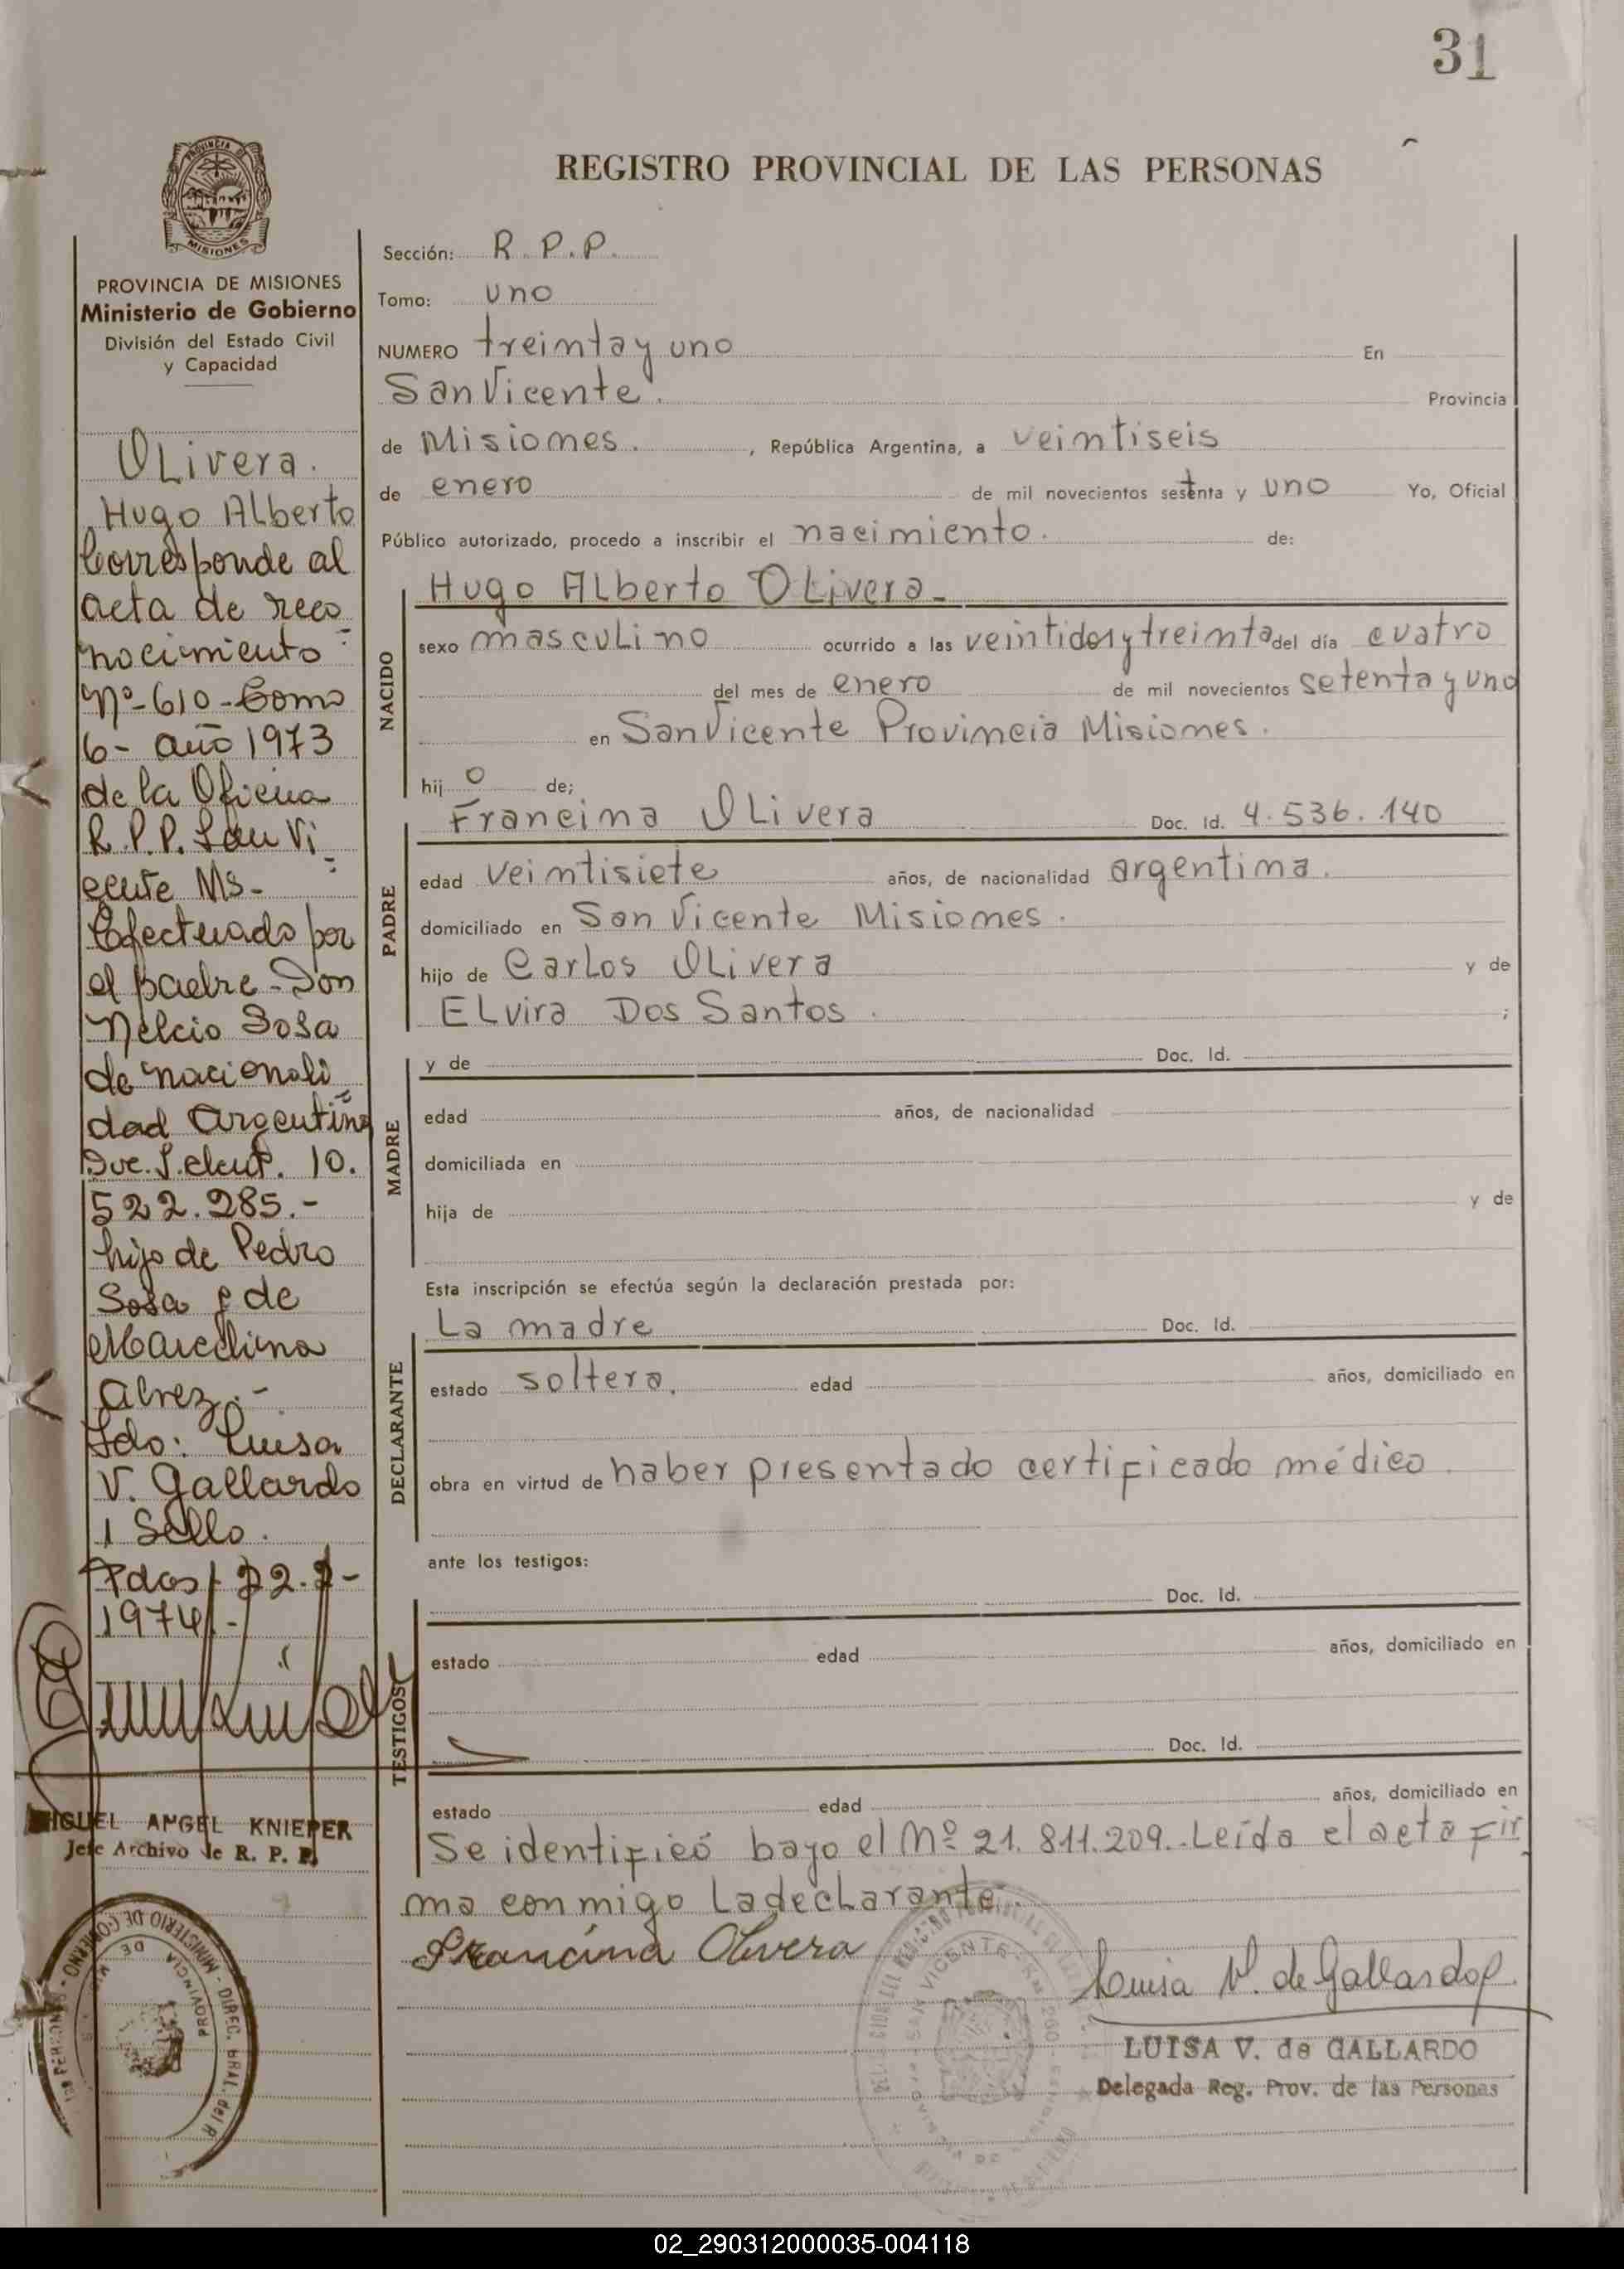 31
REGISTRO PROVINCIAL DE LAS PERSONAS
PROVINCIA DE
MISIONES
PROVINCIA DE MISIONES
Ministerio de Gobierno
División del Estado Civil
y Capacidad
OLivera.
Hugo ALberto
Corresponde al
acta de reco
nocimiento
Nº-610-Tomo
6- año 1973
de la Oficina
R.P.P. San Vi
cente Ms-
Efectuado por
el padre-Don
Nelcio Sosa
de nacionali
dad Argentina
10.
522.285.-
hijo de Pedro
Sosa y de
Marcelina
Alvez.-
Fdo: Luisa
V. Gallardo
1 Sello.
Pdas 22.2-
1974/-
MIGUEL ANGEL KNIEPER
Jefe Archivo de R. P. P.
MINISTERIO DE GOBIERNO - DIREC. GRAL. del R
PROVINCIA DE
Sección: R.P.P.
Tomo: uno
NUMERO treinta y uno En
San Vicente. Provincia
de Misiones. , República Argentina, a veintiseis
de enero de mil novecientos setenta y uno Yo, Oficial
Público autorizado, procedo a inscribir el nacimiento. de:
NACIDO
Hugo ALberto OLivera-
sexo mascuLino ocurrido a las veintidos y treinta del día cuatro
del mes de enero de mil novecientos setenta y uno
en San Vicente Provincia Misiones.
hij o de;
PADRE
Francina OLivera Doc. Id. 4.536.140
edad veintisiete años, de nacionalidad argentina.
domiciliado en San Vicente Misiones.
hijo de CarLos OLivera y de
ELvira Dos Santos. ;
MADRE
y de Doc. Id.
edad años, de nacionalidad
domiciliada en
hija de y de
Esta inscripción se efectúa según la declaración prestada por:
DECLARANTE
La madre Doc. Id.
estado soltera. edad años, domiciliado en
obra en virtud de haber presentado certificado médico.
ante los testigos:
TESTIGOS
Doc. Id.
estado edad años, domiciliado en
Doc. Id.
estado edad años, domiciliado en
Se identificó bajo el Nº 21.811.209.-Leída el acta fir
ma conmigo La decLarante.
Francina Olivera
Luisa V. de Gallardo
LUISA V. de GALLARDO
Delegada Reg. Prov. de las Personas
SAN VICENTE
02_290312000035-004118